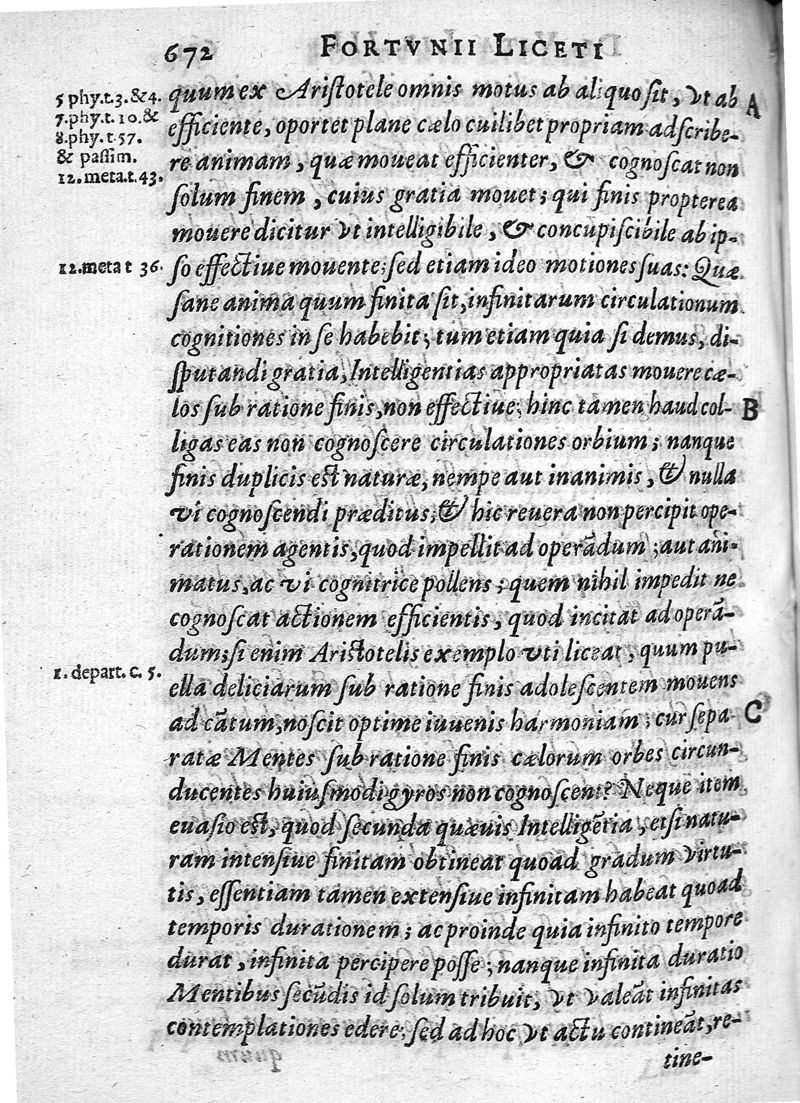 672 FORTVNII LICETI
5 phy.t.3.&4.
7.phy.t.10.&
8.phy.t 57.
& passim.
12.meta.t.43.
quum ex Aristotele omnis motus ab aliquo sit, vt ab A
efficiente, oportet plane cælo cuilibet propriam adscribe-
re animam, quæ moueat efficienter, & cognoscat non
solum finem, cuius gratia mouet; qui finis propterea
mouere dicitur vt intelligibile, & concupiscibile ab ip-
12.meta t 36.
so effectiue mouente; sed etiam ideo motiones suas: Quæ
sane anima quum finita sit, infinitarum circulationum
cognitiones in se habebit; tum etiam quia si demus, di-
sputandi gratia, Intelligentias appropriatas mouere cæ-
los sub ratione finis, non effectiue; hinc tamen haud col- B
ligas eas non cognoscere circulationes orbium; nanque
finis duplicis est naturæ, nempe aut inanimis, & nulla
vi cognoscendi præditus; & hic reuera non percipit ope-
rationem agentis, quod impellit ad operãdum; aut ani-
matus, ac vi cognitrice pollens; quem nihil impedit ne
cognoscat actionem efficientis, quod incitat ad operã-
dum; si enim Aristotelis exemplo vti liceat, quum pu-
1. de part. c. 5.
ella deliciarum sub ratione finis adolescentem mouens
ad cãtum, noscit optime iuuenis harmoniam; cur sepa- C
ratæ Mentes sub ratione finis cælorum orbes circun-
ducentes huiusmodi gyros non cognoscent? Neque item
euasio est, quod secunda quæuis Intelligẽtia, etsi natu-
ram intensiue finitam obtineat quoad gradum virtu-
tis, essentiam tamen extensiue infinitam habeat quoad
temporis durationem; ac proinde quia infinito tempore
durat, infinita percipere posse; nanque infinita duratio
Mentibus secũdis id solum tribuit, vt valeãt infinitas
contemplationes edere; sed ad hoc vt actu contineãt, re-
tine-